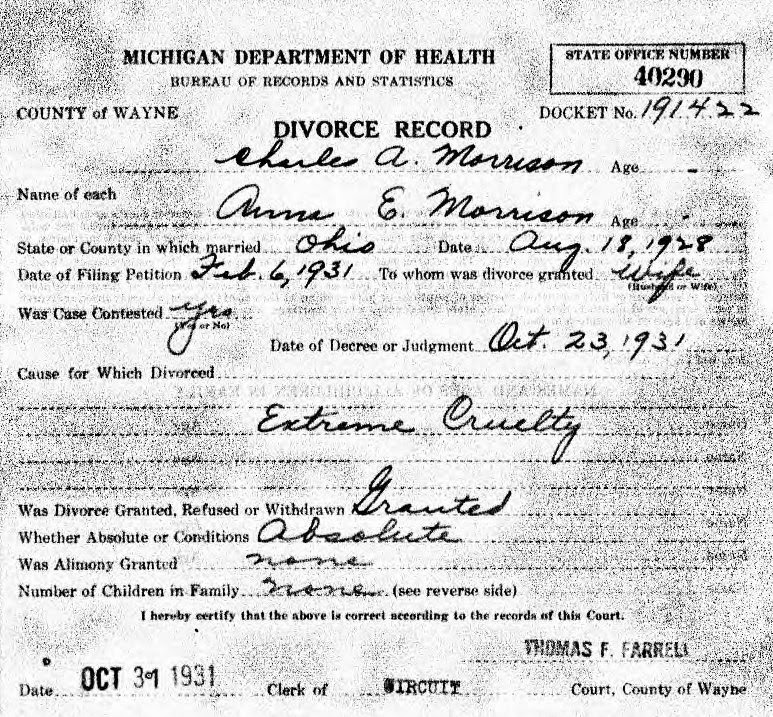 MICHIGAN DEPARTMENT OF HEALTH
BUREAU OF RECORDS AND STATISTICS
STATE OFFICE NUMBER
40290
COUNTY of WAYNE
DOCKET No. 191422
DIVORCE RECORD
Charles A. Morrison Age -
Name of each
Anna E. Morrison Age -
State or County in which married Ohio Date Aug. 18, 1928
Date of Filing Petition Feb. 6, 1931 To whom was divorce granted Wife
(Husband or Wife)
Was Case Contested yes
(Yes or No)
Date of Decree or Judgment Oct. 23, 1931
Cause for Which Divorced
Extreme Cruelty
Was Divorce Granted, Refused or Withdrawn Granted
Whether Absolute or Conditions Absolute
Was Alimony Granted none
Number of Children in Family none (see reverse side)
I hereby certify that the above is correct according to the records of this Court.
THOMAS F. FARRELL
Date OCT 31 1931 Clerk of CIRCUIT Court, County of Wayne